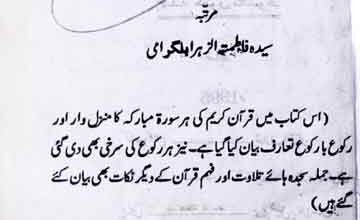 مرتبہ
سیدہ فاطمۃ الزہرا بلگرامی
( اس کتاب میں قرآن کریم کی ہر سورۃ مبارکہ کا منزل وار اور
رکوع با رکوع تعارف بیان کیا گیا ہے۔ نیز ہر رکوع کی سرخی بھی دی گئی
ہے۔ جملہ سجدہ ہائے تلاوت اور فہم قرآن کے دیگر نکات بھی بیان کئے
گئے ہیں )